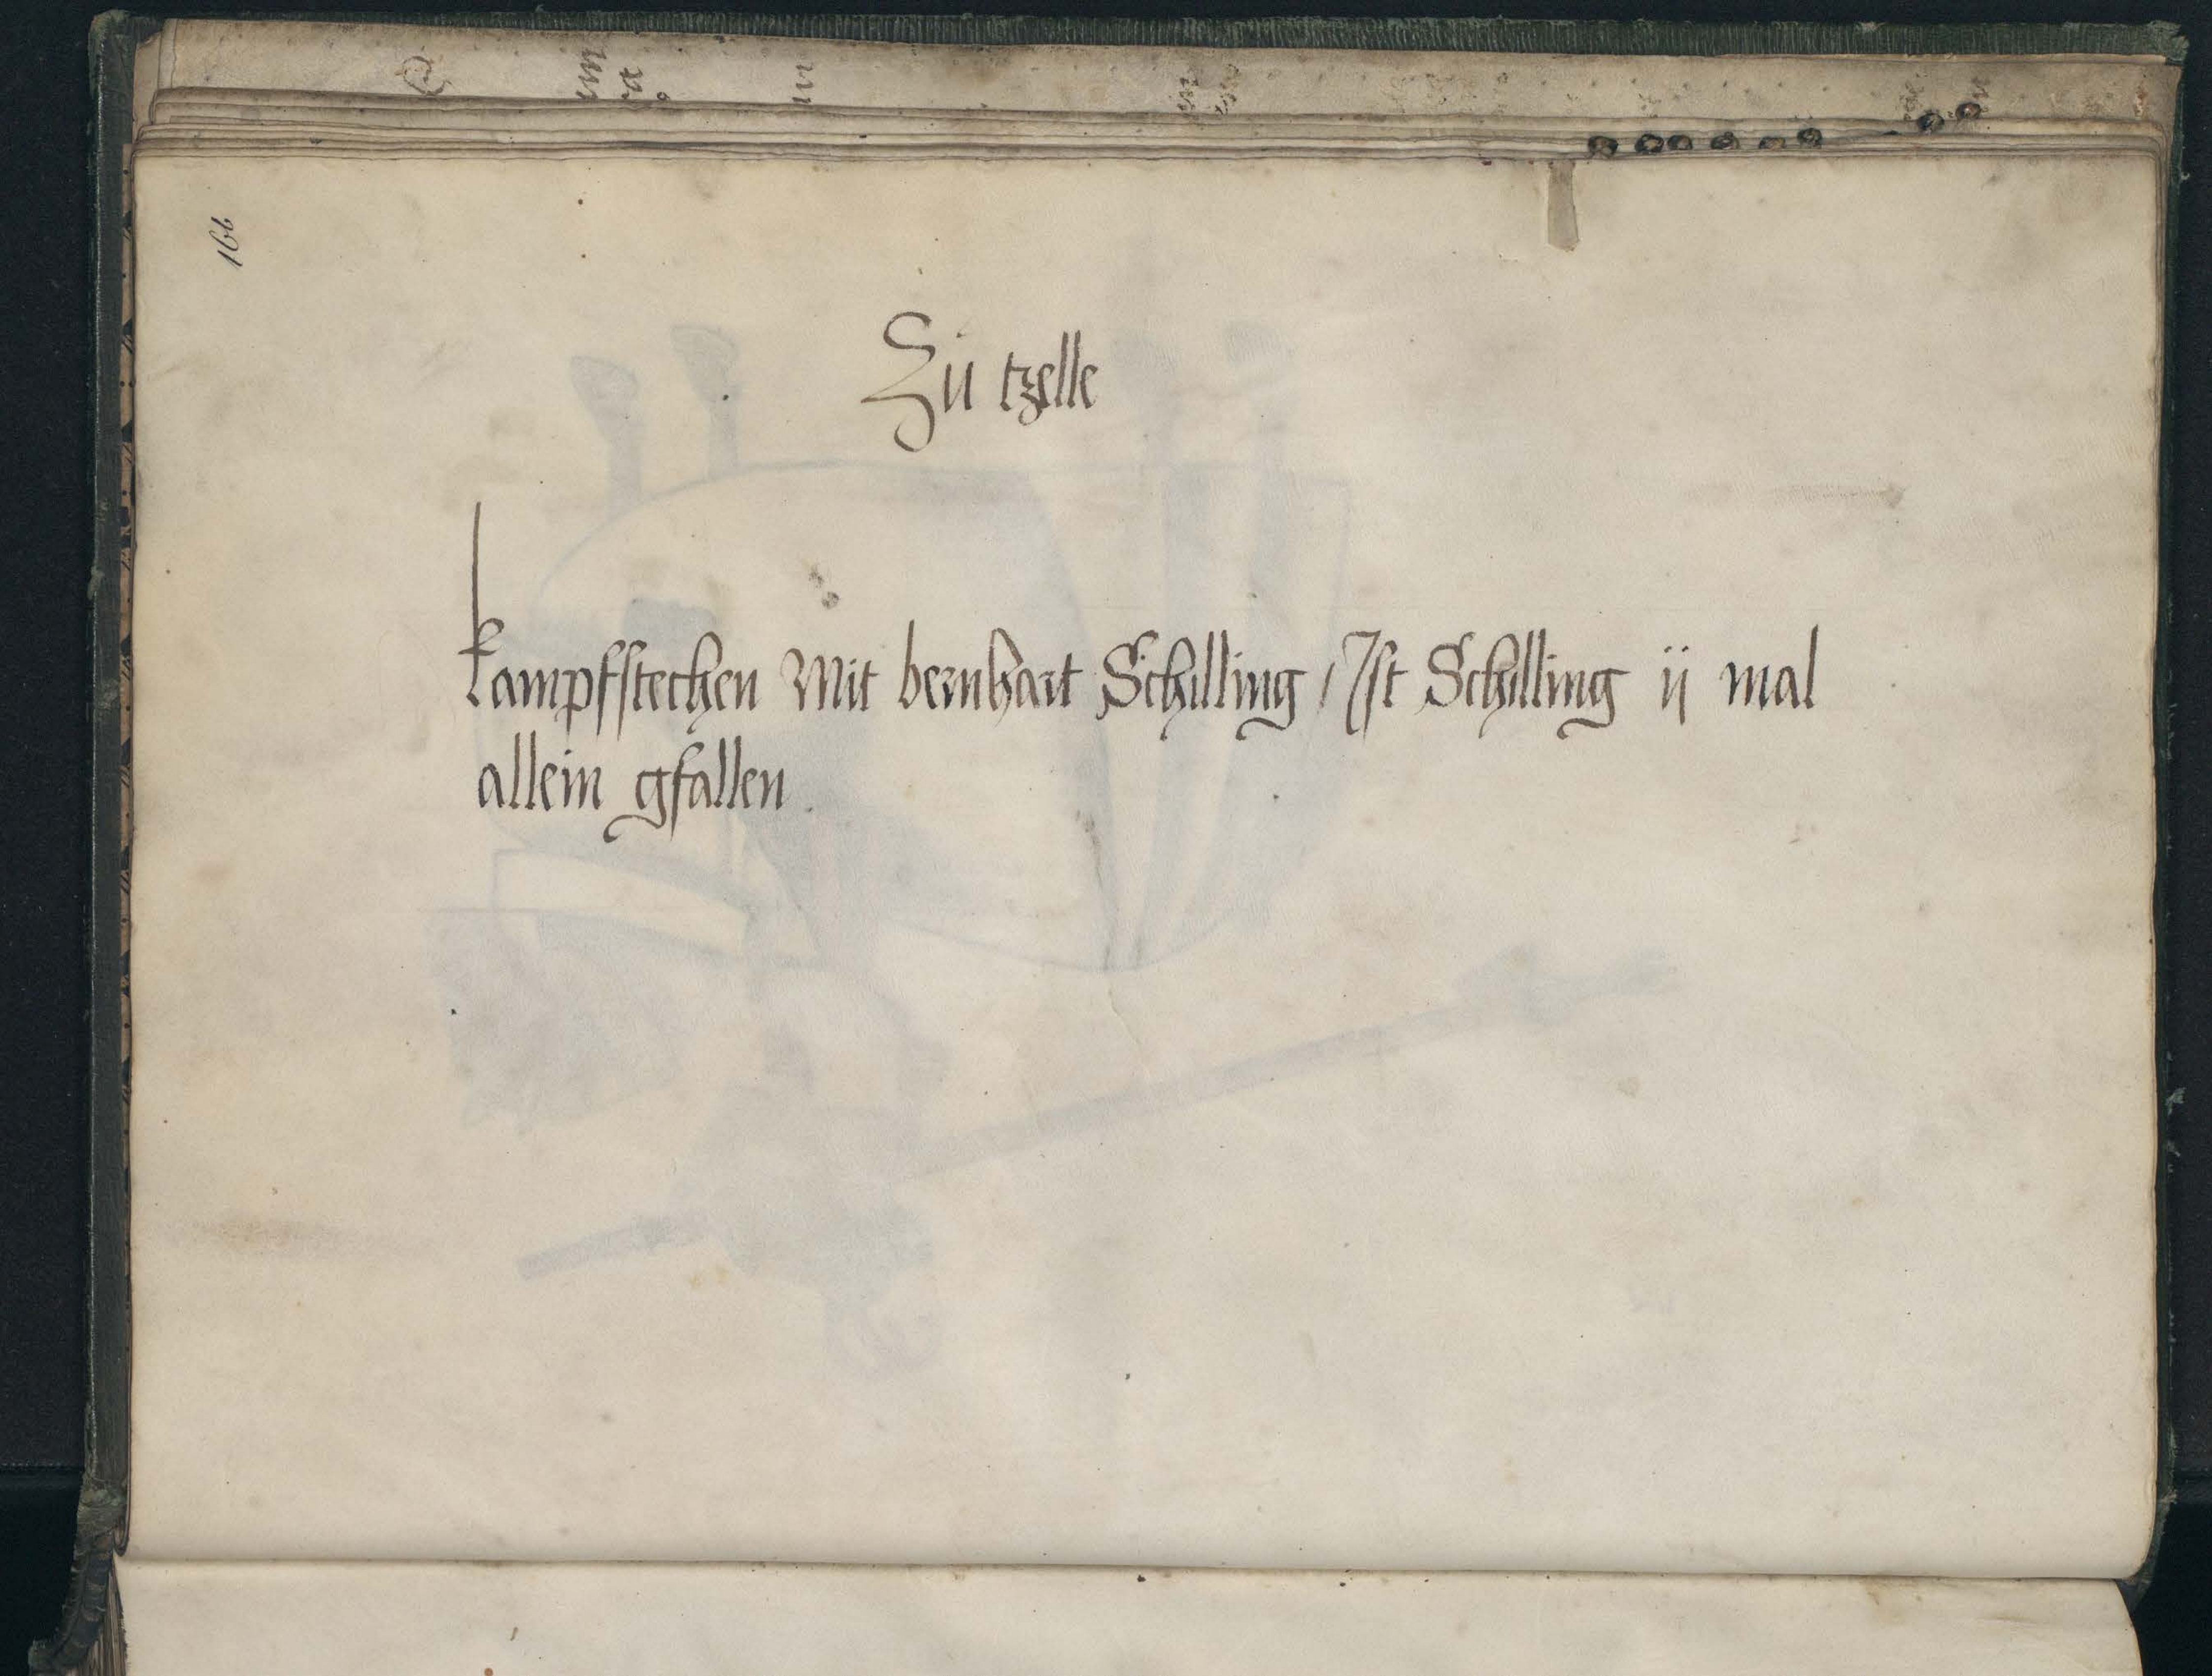 166
Zu tzelle
kampfstechen Mit bernhart Schilling / Ist Schilling ij mal
allein gfallen